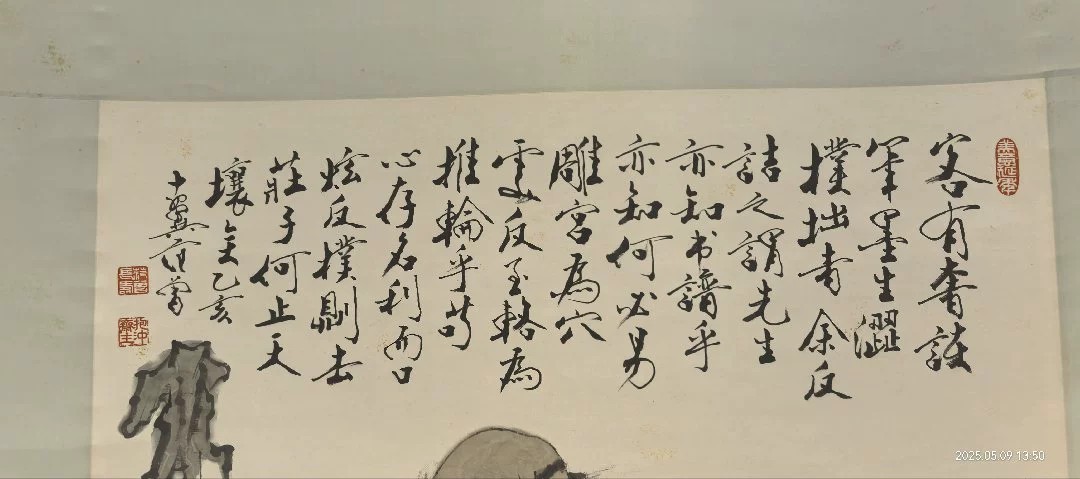 客有奢談
筆墨生澀
樸拙者余反
詰之謂先生
亦知书譜乎
亦知何必易
雕宮為穴
處反玉輅為
椎輪乎苟
心存名利而口
炫反樸則去
莊子何止天
壤矣乙亥
十翼范曾
2025.05.09 13:50